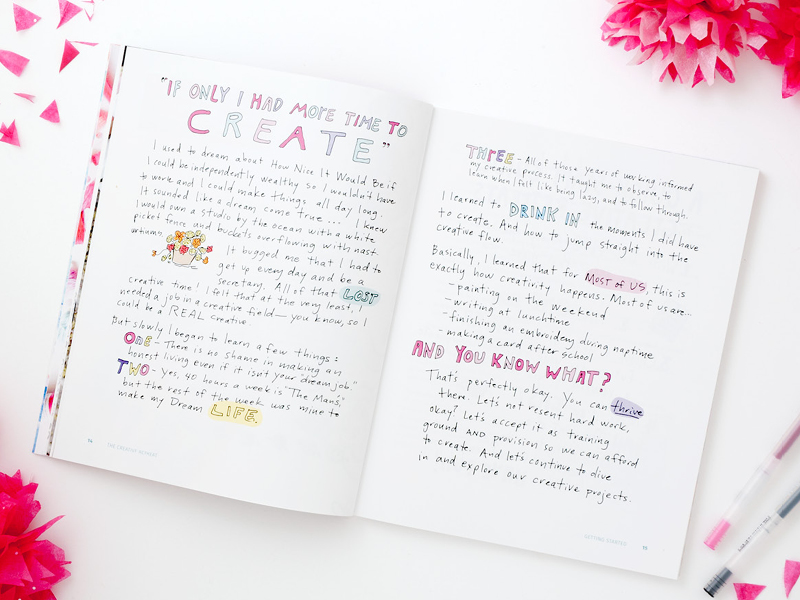 "IF ONLY I HAD MORE TIME TO
CREATE"
I used to dream about How Nice It Would Be if
I could be independently wealthy so I wouldn't have
to work and I could make things all day long.
It sounded like a dream come true... I knew
I would own a studio by the ocean with a white
picket fence and buckets overflowing with nast-
urtiums.
It bugged me that I had to
get up every day and be a
secretary. All of that LOST
creative time! I felt that at the very least, I
needed a job in a creative field— you know, so I
could be a REAL creative.
But slowly I began to learn a few things:
ONE- There is no shame in making an
honest living even if it isn't your "dream job."
TWO- Yes, 40 hours a week is "The Man's,"
but the rest of the week was mine to
make my Dream LIFE.
14 THE CREATIVE
THREE- All of those years of working informed
my creative process. It taught me to observe, to
learn when I felt like being lazy, and to follow through.
I learned to DRINK IN the moments I did have
to create. And how to jump straight into the
creative flow.
Basically, I learned that for Most of US, this is
exactly how creativity happens. Most of us are...
-painting on the weekend
-writing at lunchtime
-finishing an embroidery during naptime
-making a card after school
AND YOU KNOW WHAT?
That's perfectly okay. You can thrive
there. Let's not resent hard work,
okay? Let's accept it as training
ground AND provision so we can afford
to create. And let's continue to dive
in and explore our creative projects.
GETTING STARTED 15